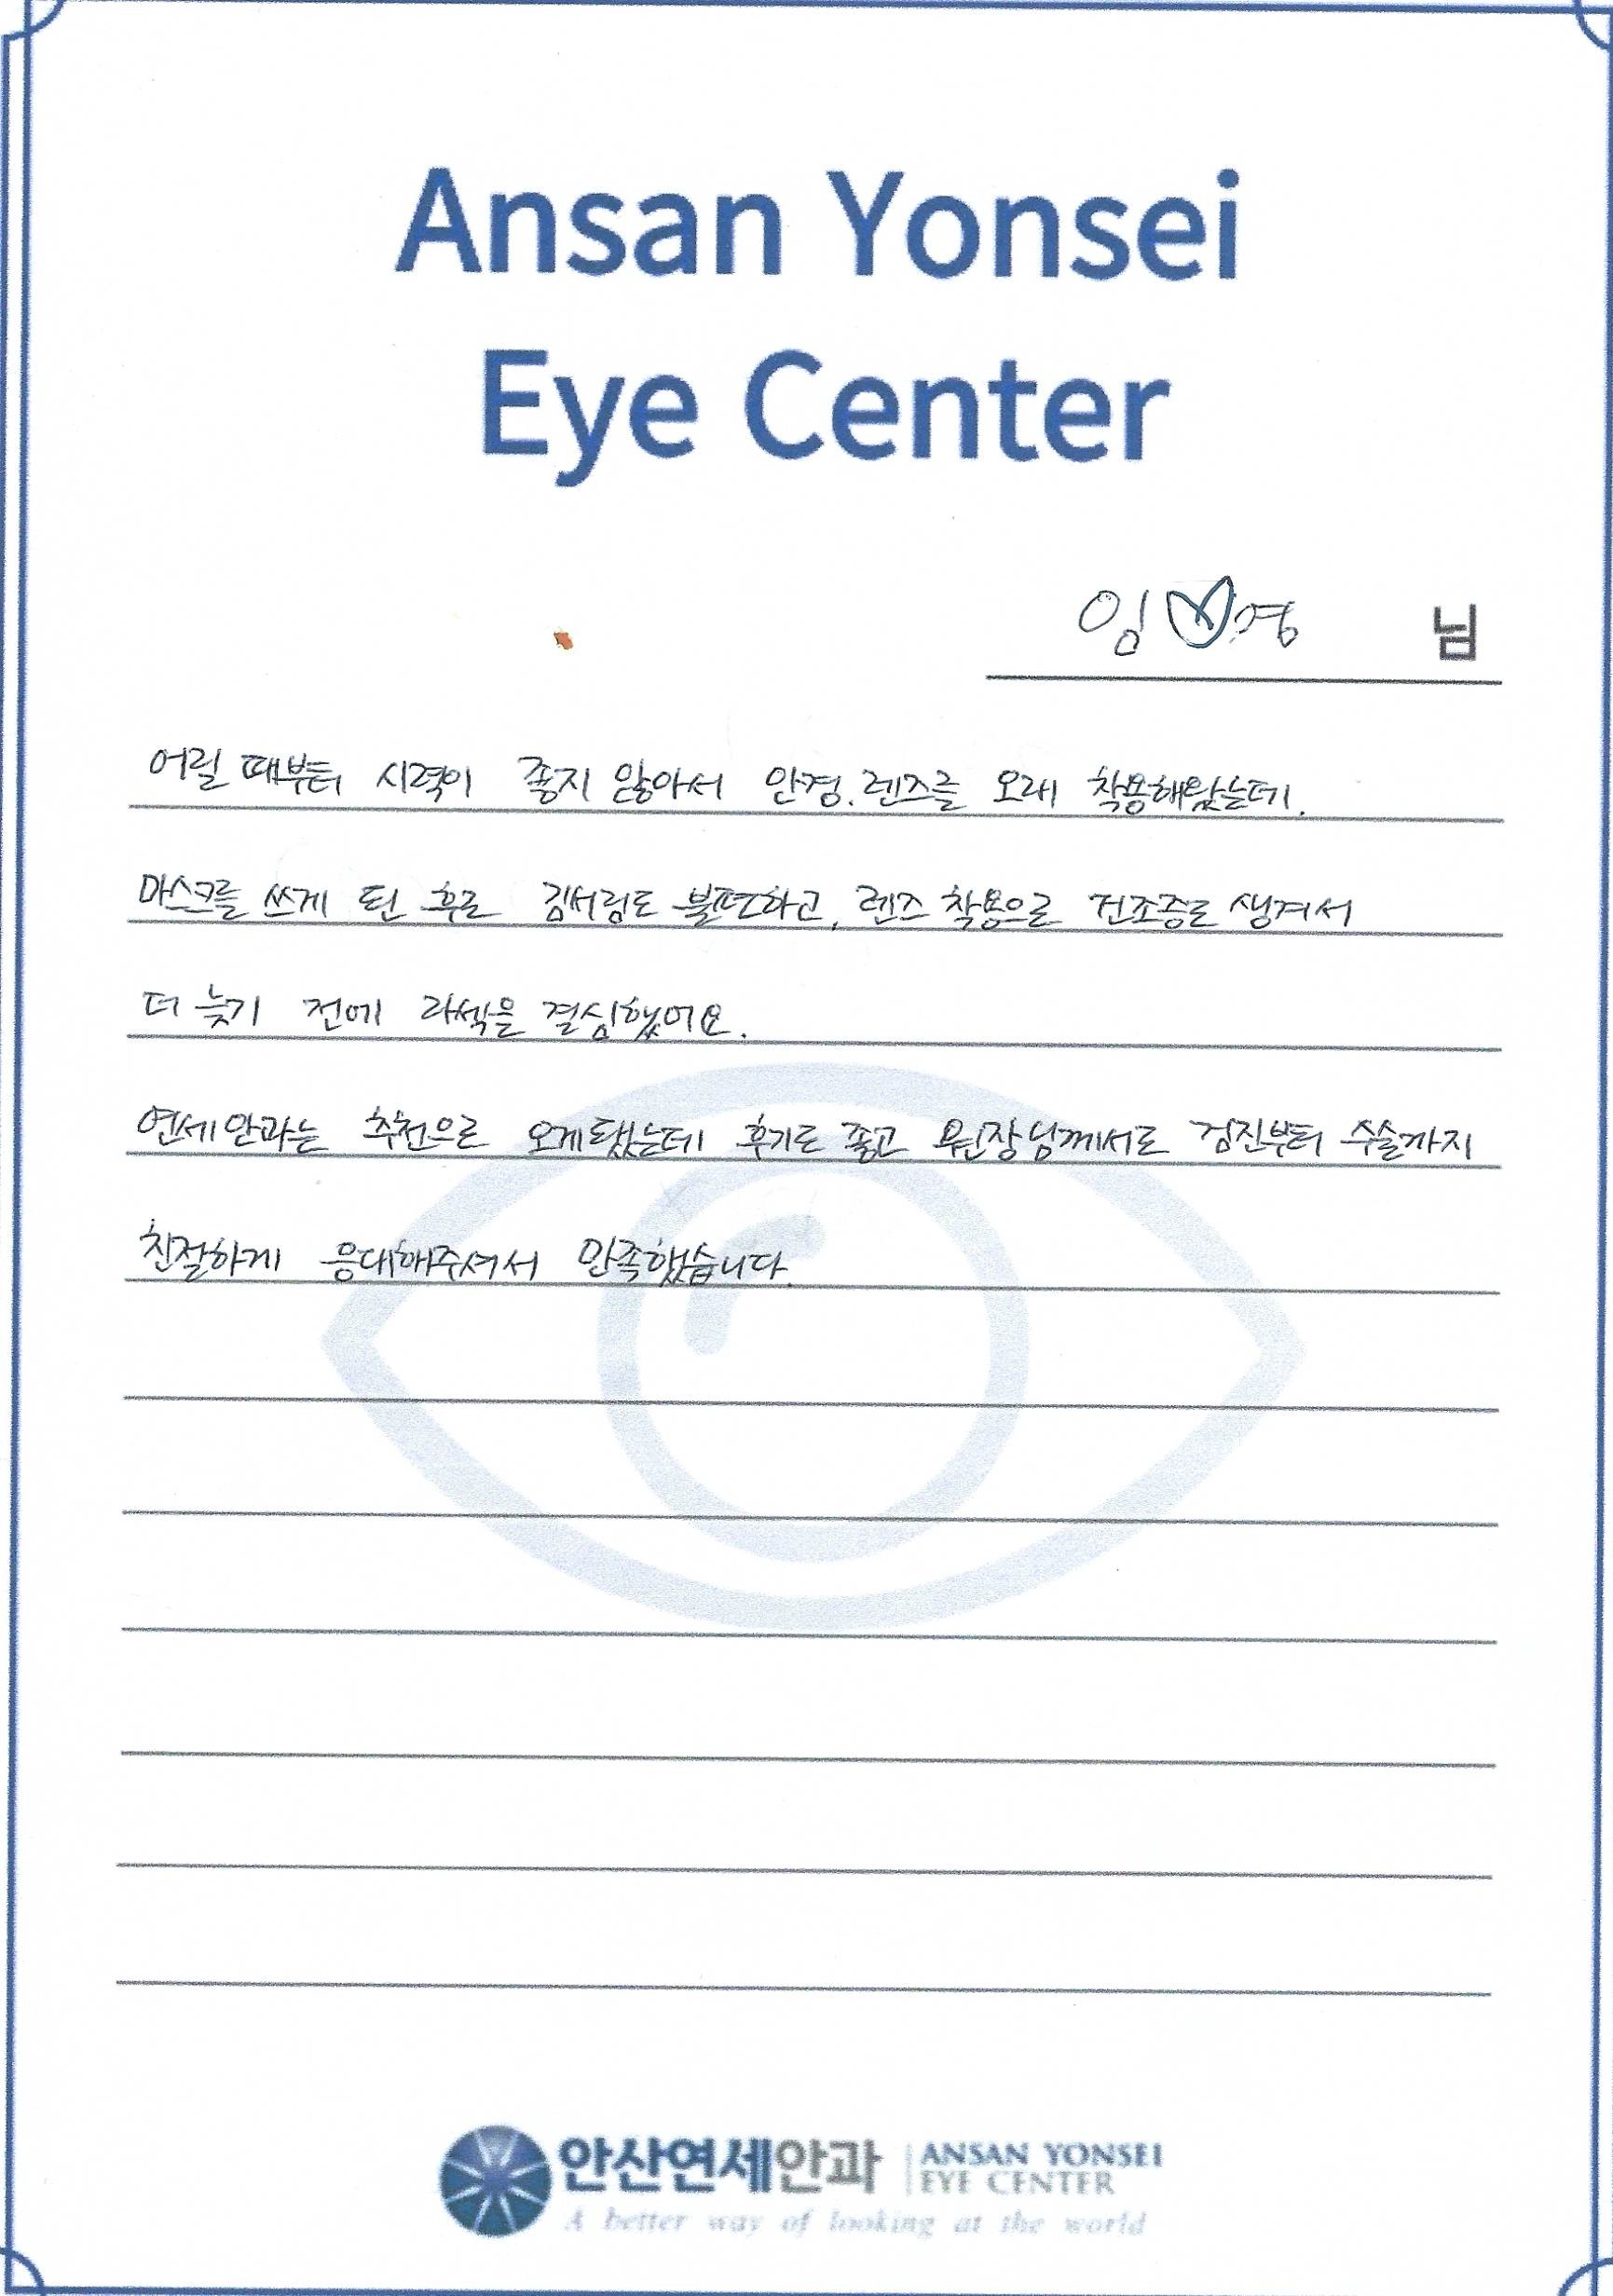 Ansan Yonsei
Eye Center
임♡경 님
어릴 때부터 시력이 좋지 않아서 안경. 렌즈를 오래 착용해왔는데.
마스크를 쓰게 된 후로 김서림도 불편하고, 렌즈 착용으로 건조증도 생겨서
더 늦기 전에 라섹을 결심했어요.
연세안과는 추천으로 오게됐는데 후기도 좋고 원장님께서도 검진부터 수술까지
친절하게 응대해주셔서 만족했습니다.
안산연세안과 ANSAN YONSEI
EYE CENTER
A better way of looking at the world